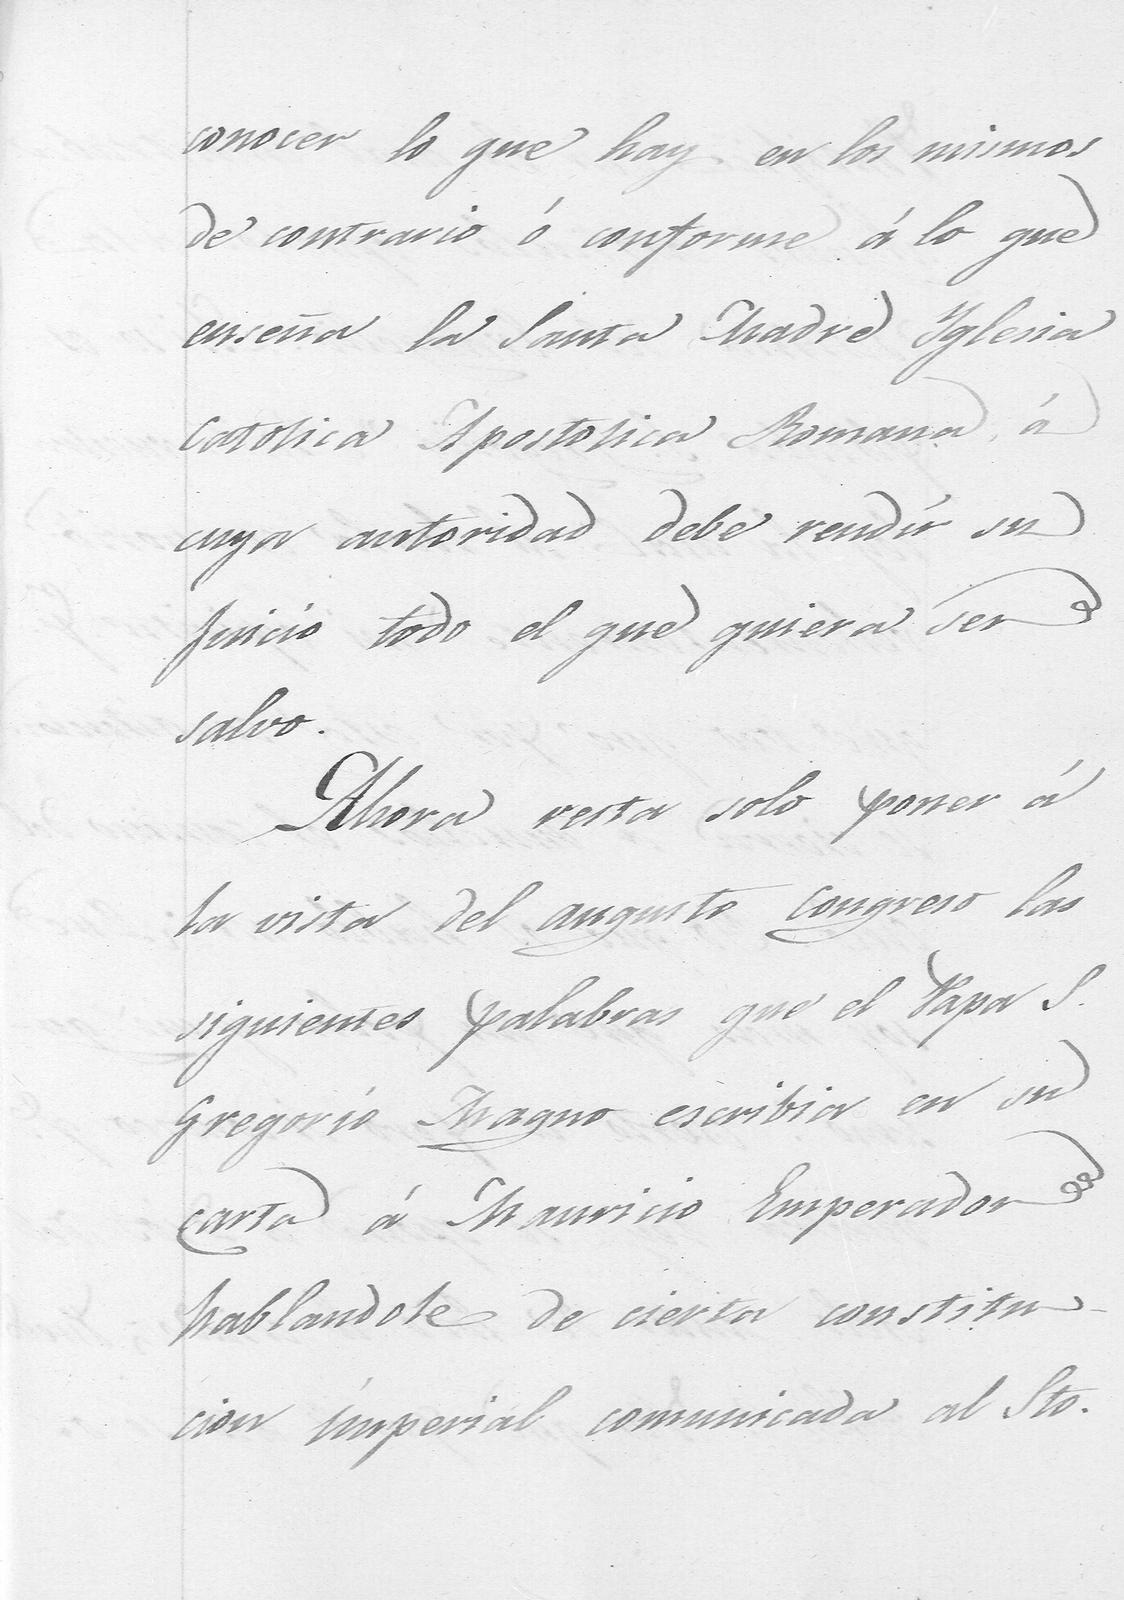 conocer lo que hay en los mismos
de contrario ó conforme á lo que
enseña la Santa Madre Yglesia
Catolica Apostolica Romana, á
cuya autoridad debe rendir su
juicio todo el que quiera ser
salvo.
Ahora resta solo poner á
la vista del augusto congreso las
siguientes palabras que el Papa S.
Gregorio Magno escribia en su
carta á Mauricio Emperador
hablandole de cierta constitu-
cion imperial comunicada al Sto.